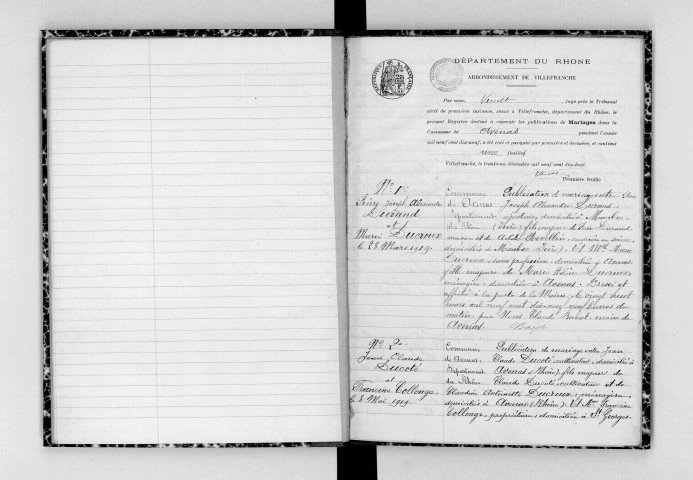 DÉPARTEMENT DU RHONE
ARRONDISSEMENT DE VILLEFRANCHE
Par nous, Juge près le Tribunal
civil de première instance, séant à Villefranche, département du Rhône, le
présent Registre destiné à recevoir les publications de Mariages dans la
Commune de Avenas pendant l'année
mil neuf cent dix-neuf, a été coté et paraphé par première et dernière, et contient
une feuille
Villefranche, le trente-un décembre mil neuf cent dix-huit.
Première feuille
No 1
Pierre Joseph Alexandre
Durand
et
Marie Ducroux
le 28 Mars 1919.
Commune Publication de mariage entre Pierre
de Avenas Joseph Alexandre Durand
Département ajusteur, domicilié à
du Rhône (Isère) fils majeur de Jean Durand
maçon et de Adèle
domiciliés à (Isère). Et Mlle Marie
Ducroux, sans profession, domiciliée à Avenas
fille majeure de Marie Ducroux
ménagère, domiciliée à Avenas. Dressé et
affiché à la porte de la Mairie, le vingt huit
mars mil neuf cent dix-neuf, heures du
matin, par Nous Claude maire de
Avenas.
No 2
Jean Claude
Ducoté
et
Francine Collonge
le 8 Mai 1919
Commune Publication de mariage entre Jean
de Avenas Claude Ducoté, cultivateur, domicilié à
Département Avenas (Rhône), fils majeur de
du Rhône Claude Ducoté, cultivateur et de
Claudine Antoinette Ducroux, ménagère,
domiciliés à Avenas (Rhône). Et Francine
Collonge, propriétaire, domiciliée à St Georges